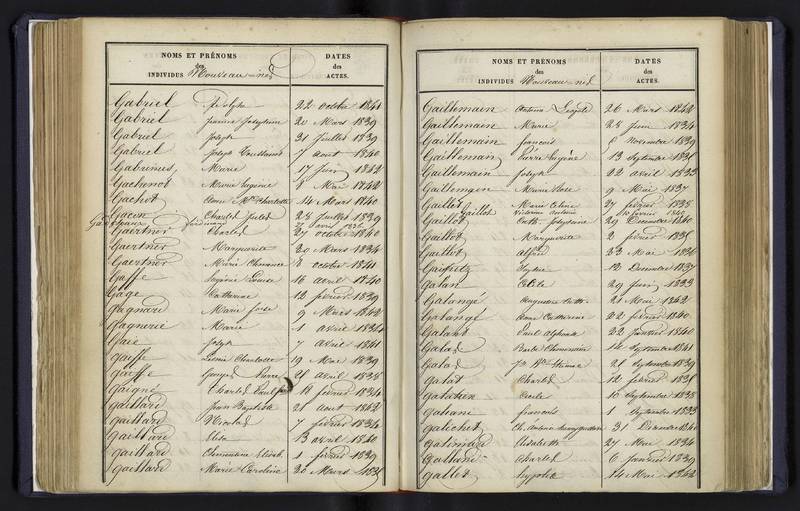 NOMS ET PRÉNOMS
des
INDIVIDUS Nouveau-nés
DATES
des
ACTES.
Gabriel Adolphe 22 octobre 1841
Gabriel Jeanne Joséphine 20 Mars 1839
Gabriel Joseph 31 Juillet 1839
Gabriel Joseph Toussaint 7 aout 1840
Marie 17 Juin 1842
Gachenot Marie Eugénie 8 Mai 1842
Gachot Anne Charlotte 14 Mars 1840
Gacon Charles 28 Juillet 1839
avril 1836
Gaertner Charles 27 octobre 1840
Gaertner Marguerite 20 Mars 1834
Gaertner Marie 8 octobre 1841
Gaffe Louise 16 avril 1840
Gage Catherine 12 février 1839
Gagnard Marie 9 Mars 1842
Gagnerie Marie 1 avril 1834
Gaié Joseph 7 avril 1841
Gaiffe Charlotte 19 Mai 1839
Gaiffe Pierre 21 avril 1838
Gaigné Charles Paul 18 février 1834
Gaillard Jean Baptiste 21 aout 1842
Gaillard Nicolas 7 février 1834
Gaillard Elisa 13 avril 1840
Gaillard Clémentine Elisab. 1 février 1839
Gaillard Marie Caroline 20 Mars 1835
NOMS ET PRÉNOMS
des
INDIVIDUS Nouveau-nés
DATES
des
ACTES.
Gaillemain Antoine 26 Mars 1842
Gaillemain Marie 28 Juin 1834
Gaillemain françois 8 Novembre 1839
Gaillemain Pierre Eugène 13 Septembre 1835
Gaillemain Joseph 22 avril 1833
Gaillemain Marie Rose 9 Mai 1837
Gaillot Marie Celine 27 février 1838
Gaillot Victorine 10 février 1840
Gaillot Cath. Joséphine 29 Décembre 1840
Gaillot Marguerite 2 février 1835
Gaillot Alfred 23 Mai 1836
Sophie 12 Décembre 1837
Galan 29 Juin 1833
Galangé Augustine Cath. 21 Mai 1842
Galangé Anne Catherine 22 février 1840
Galant Paul Alphonse 22 Janvier 1840
Barbe Clémentine 14 Septembre 1841
Etienne 28 Septembre 1839
Galat Charles 12 février 1835
Cécile 10 Septembre 1838
françois 1 Septembre 1833
Galichet Ch. Antoine 31 Décembre 1840
Galimard Elisabeth 27 Mai 1834
Galland Charles 6 Janvier 1839
Gallet hypolite 14 Mai 1842